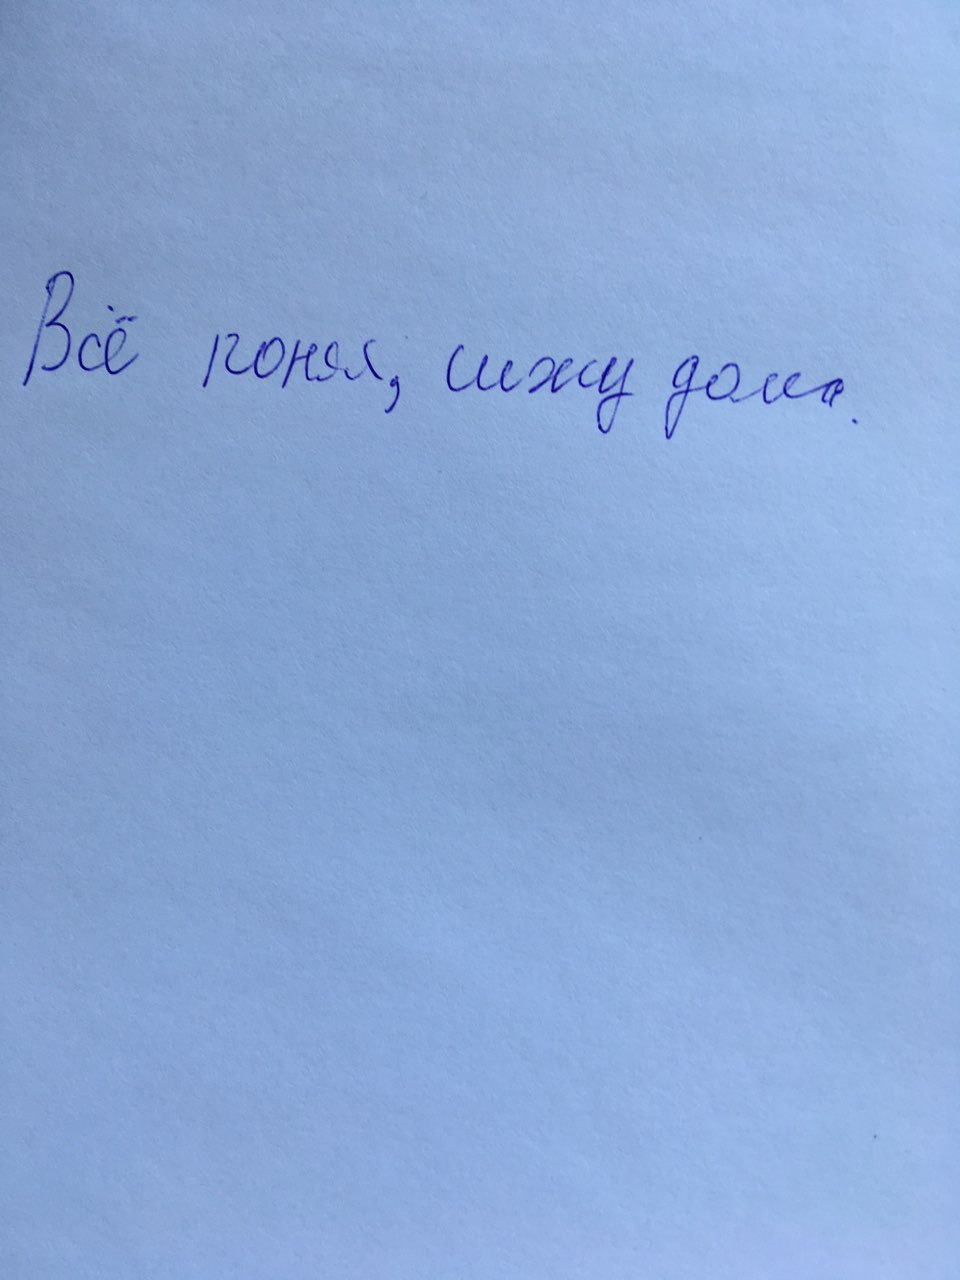 Всё понял, сижу дома.